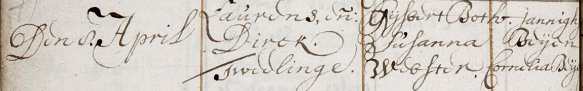 Den 8. April
Laurens, en:
Dirck.
Tweelinge.
Gijsbert Both.
Susanna
Webster.
Jannigh
Beijen
Cornelia Beije